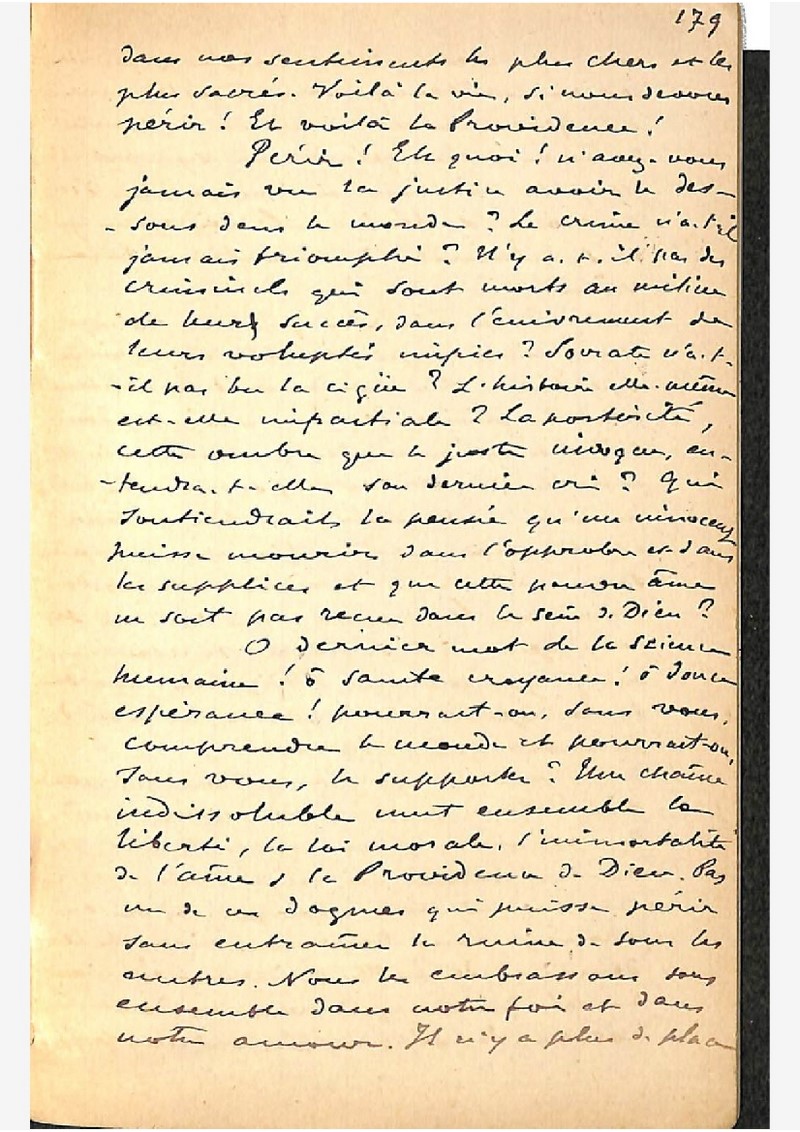 179
dans nos sentiments les plus chers et les
plus sacrés. Voilà la vie, si nous devons
périr ! Et voilà la Providence !
Périr ! Eh quoi ! n'avez-vous
jamais vu la justice avoir le des-
-sous dans le monde ? Le crime n'a-t-il
jamais triomphé ? N'y a-t-il pas des
criminels qui sont morts au milieu
de leurs succès, dans l'enivrement de
leurs voluptés impies ? Socrate n'a-t-
-il pas bu la cigüe ? L'histoire elle-même
est-elle impartiale ? La postérité,
cette ombre que le juste invoque, en-
-tendra-t-elle son dernier cri ? Qui
soutiendrait la pensée qu'un innocent
puisse mourir dans l'opprobre et dans
les supplices et que cette pauvre âme
ne soit pas reçue dans le sein de Dieu ?
O dernier mot de la science
humaine ! ô sainte croyance ! ô douce
espérance ! pourrait-on, sans vous,
comprendre le monde et pourrait-on,
sans vous, le supporter ? Une chaîne
indissoluble unit ensemble la
liberté, la loi morale, l'immortalité
de l'âme & la Providence de Dieu. Pas
un de ces dogmes qui puisse périr
sans entraîner la ruine de tous les
autres. Nous les embrassons tous
ensemble dans notre foi et dans
notre amour. Il n'y a plus de place